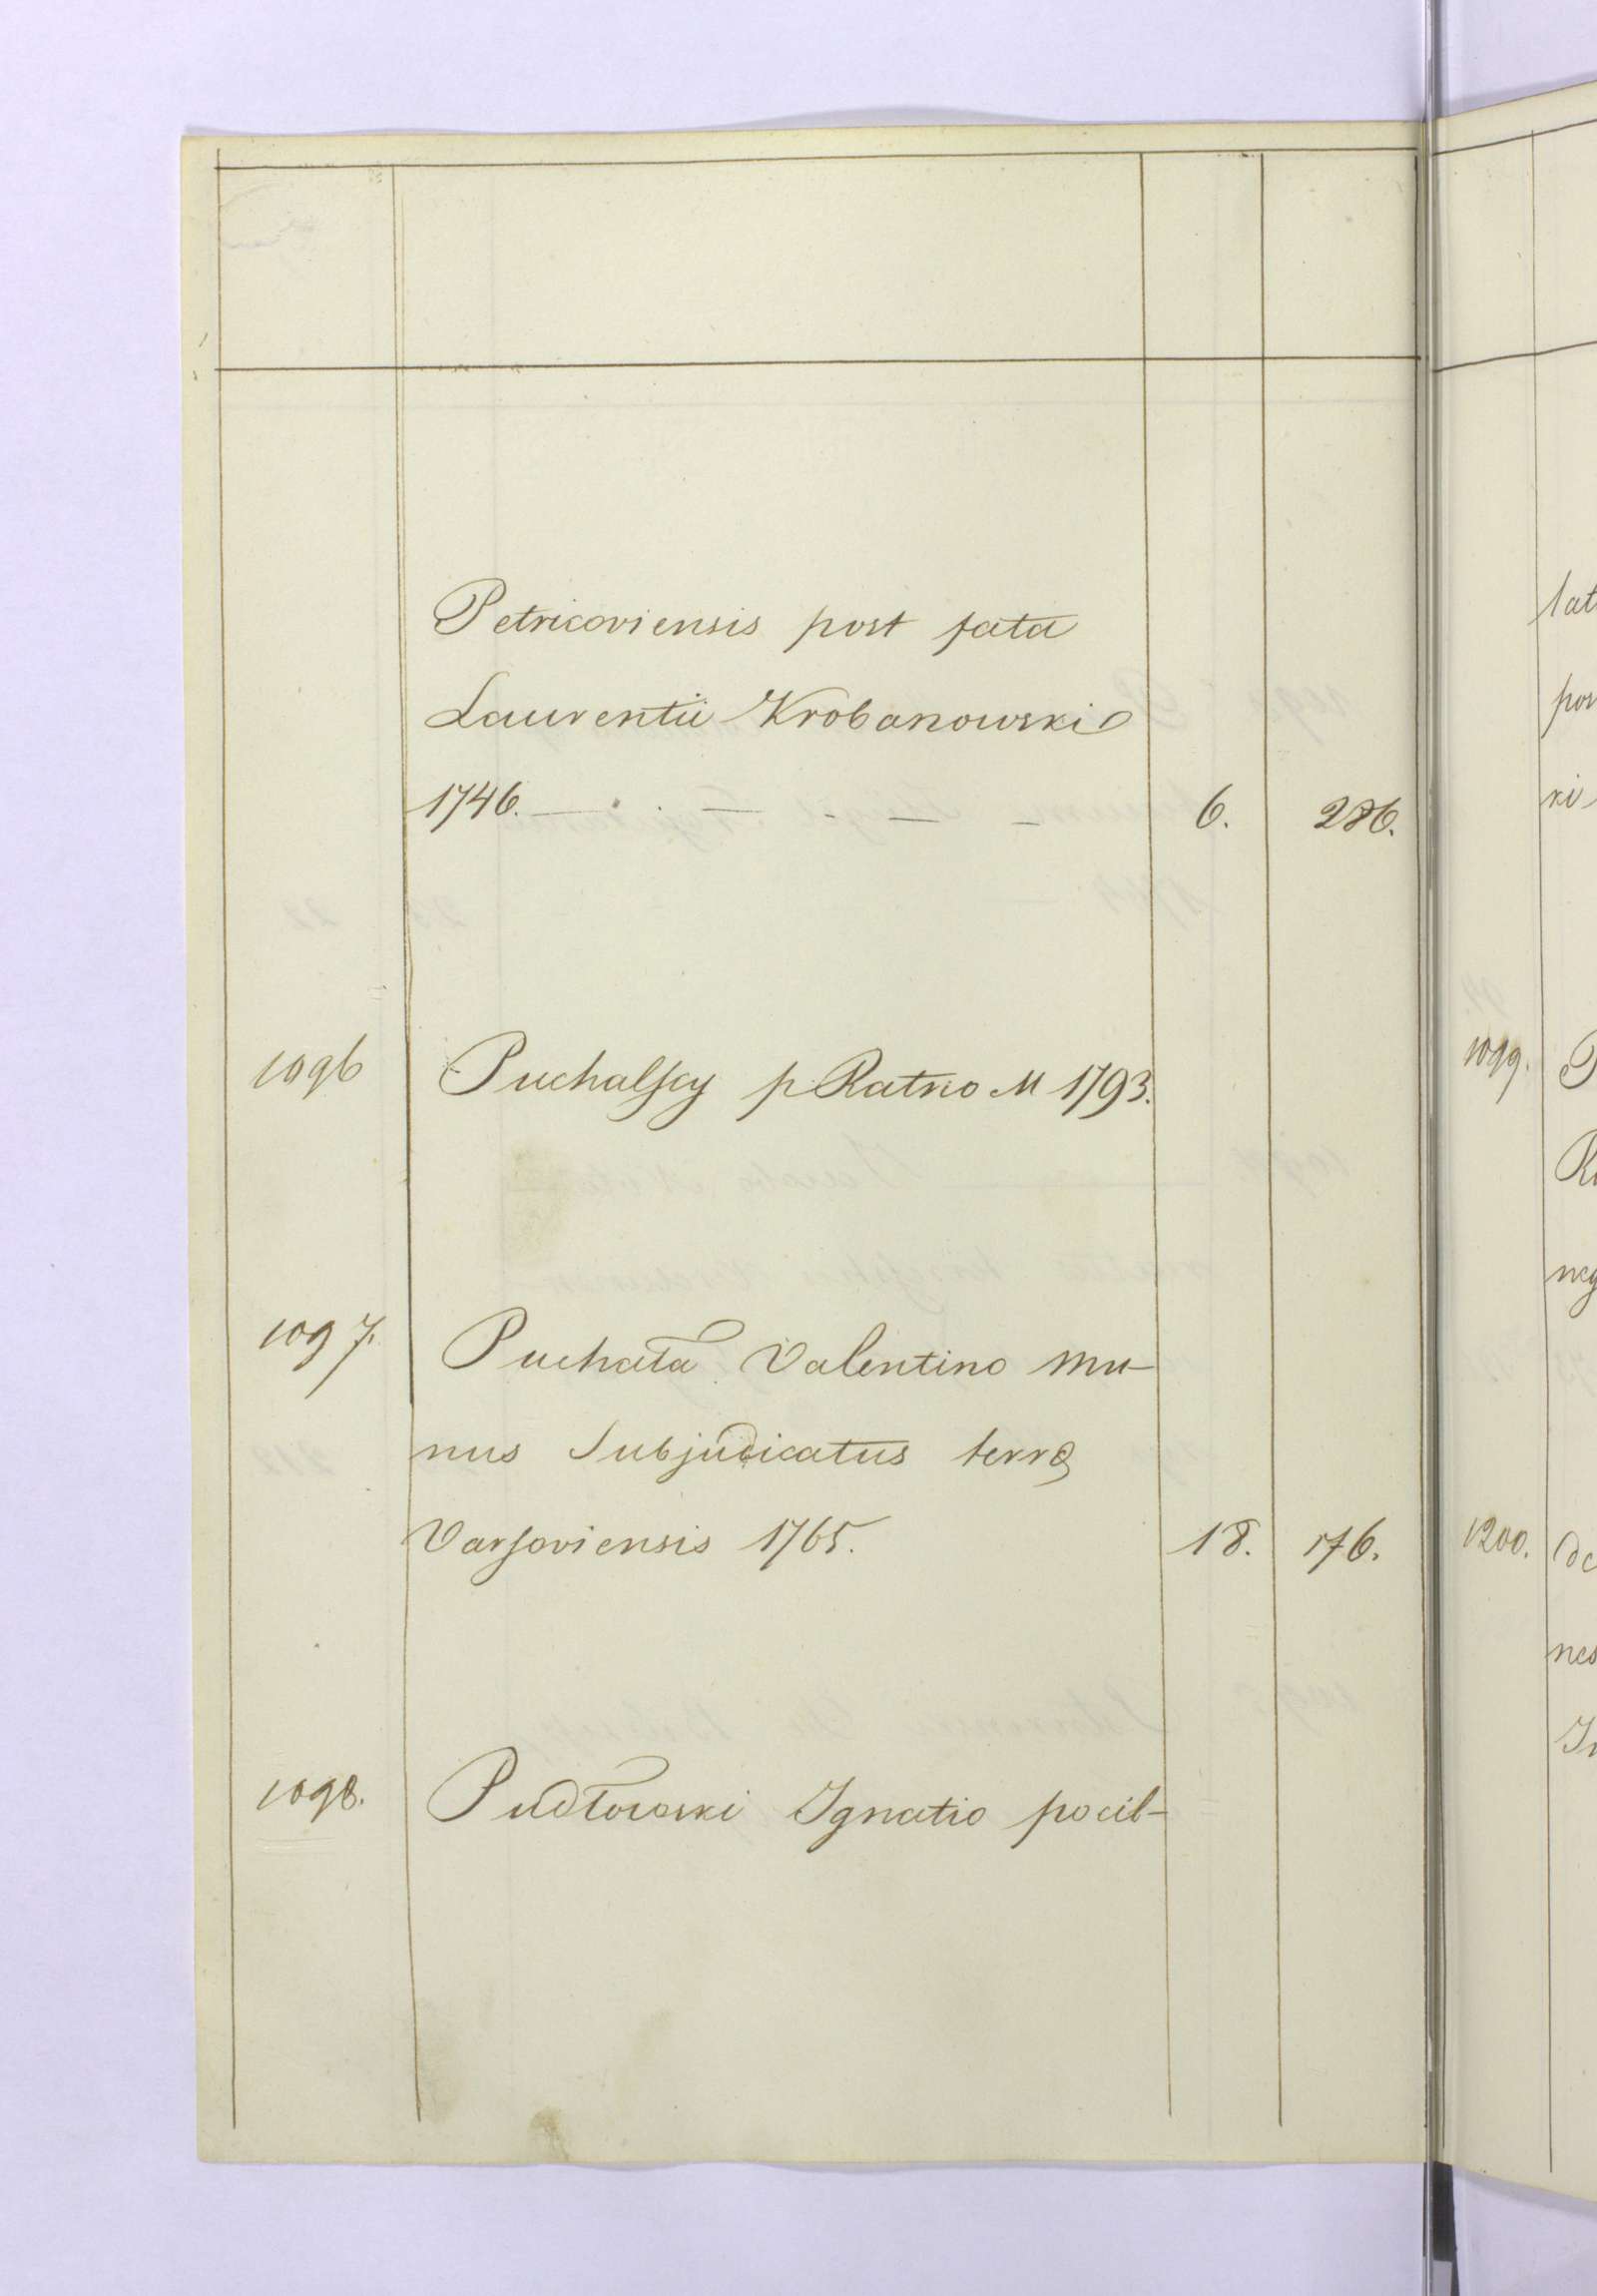 Petricoviensis post fata
Laurentii Krobanowski
1746. — . . — - — - 6. 286.
1096 Puchalscy p Ratno M 1793.
1097. Puchała Valentino mu-
nus Subjudicatus terrę
Varsoviensis 1765. 18. 176.
1098. Pudłowski Ignatio pocil-
lat
por
ki
1099. P
neg
1200. de
nes